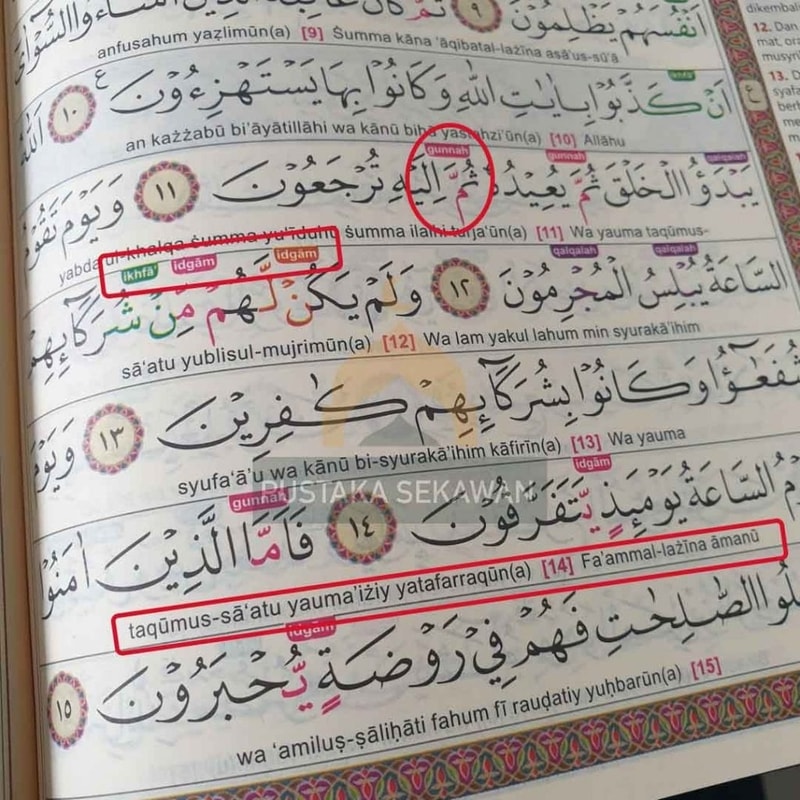 أَنْفُسَهُمْ يَظْلِمُوْنَ ٩ ثُمَّ كَانَ عَاقِبَةَ الَّذِيْنَ اَسَاۤءُوا السُّوْۤآٰى
anfusahum yaẓlimūn(a) [9] Ṡumma kāna ‘āqibatal-lażīna asā'us-sū'ā
ikhfa'
اَنْ كَذَّبُوْا بِاٰيٰتِ اللّٰهِ وَكَانُوْا بِهَا يَسْتَهْزِءُوْنَ ࣖ ١٠ اَللّٰهُ
an każżabū bi'āyātillāhi wa kānū bihā yastahzi'ūn(a) [10] Allāhu
qalqalah gunnah gunnah
يَبْدَؤُا الْخَلْقَ ثُمَّ يُعِيْدُهٗ ثُمَّ اِلَيْهِ تُرْجَعُوْنَ ١١ وَيَوْمَ تَقُوْمُ
yabda'ul-khalqa ṡumma yu‘īduhū ṡumma ilaihi turja‘ūn(a) [11] Wa yauma taqūmus-
qalqalah qalqalah idgām idgām ikhfā'
السَّاعَةُ يُبْلِسُ الْمُجْرِمُوْنَ ١٢ وَلَمْ يَكُنْ لَّهُمْ مِّنْ شُرَكَاۤىِٕهِمْ
sā‘atu yublisul-mujrimūn(a) [12] Wa lam yakul lahum min syurakā'ihim
شُفَعٰۤؤُا وَكَانُوْا بِشُرَكَاۤىِٕهِمْ كٰفِرِيْنَ ١٣ وَيَوْمَ
syufa‘ā'u wa kānū bi-syurakā'ihim kāfirīn(a) [13] Wa yauma
PUSTAKA SEKAWAN
idgām gunnah
السَّاعَةُ يَوْمَىِٕذٍ يَّتَفَرَّقُوْنَ ١٤ فَاَمَّا الَّذِيْنَ اٰمَنُوْا
taqūmus-sā‘atu yauma'iżiy yatafarraqūn(a) [14] Fa'ammal-lażīna āmanū
idgām
الصّٰلِحٰتِ فَهُمْ فِيْ رَوْضَةٍ يُّحْبَرُوْنَ ١٥
wa ‘amiluṣ-ṣāliḥāti fahum fī rauḍatiy yuḥbarūn(a) [15]
dikembali
12. Dan
mat, ora
musyri
13. D
syafa
berh